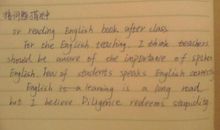 or reading English book after class
For the English teaching, I think teachers
should be aware of the importance of spoken
English, few of students speaks English correctly
English is a learning is a long road,
but I believe Diligence redeems stupidity